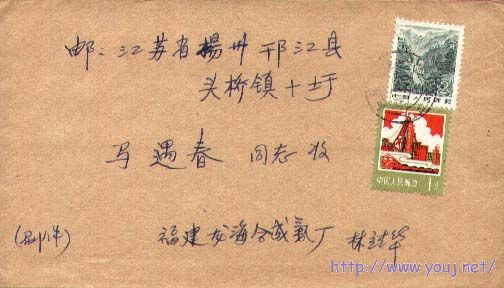 邮：江苏省揚州邗江县
头桥镇十圩
马遇春 同志收
福建龙海合成氨厂
(印件)
中国人民邮政
中国人民邮政
http://www.youj.net